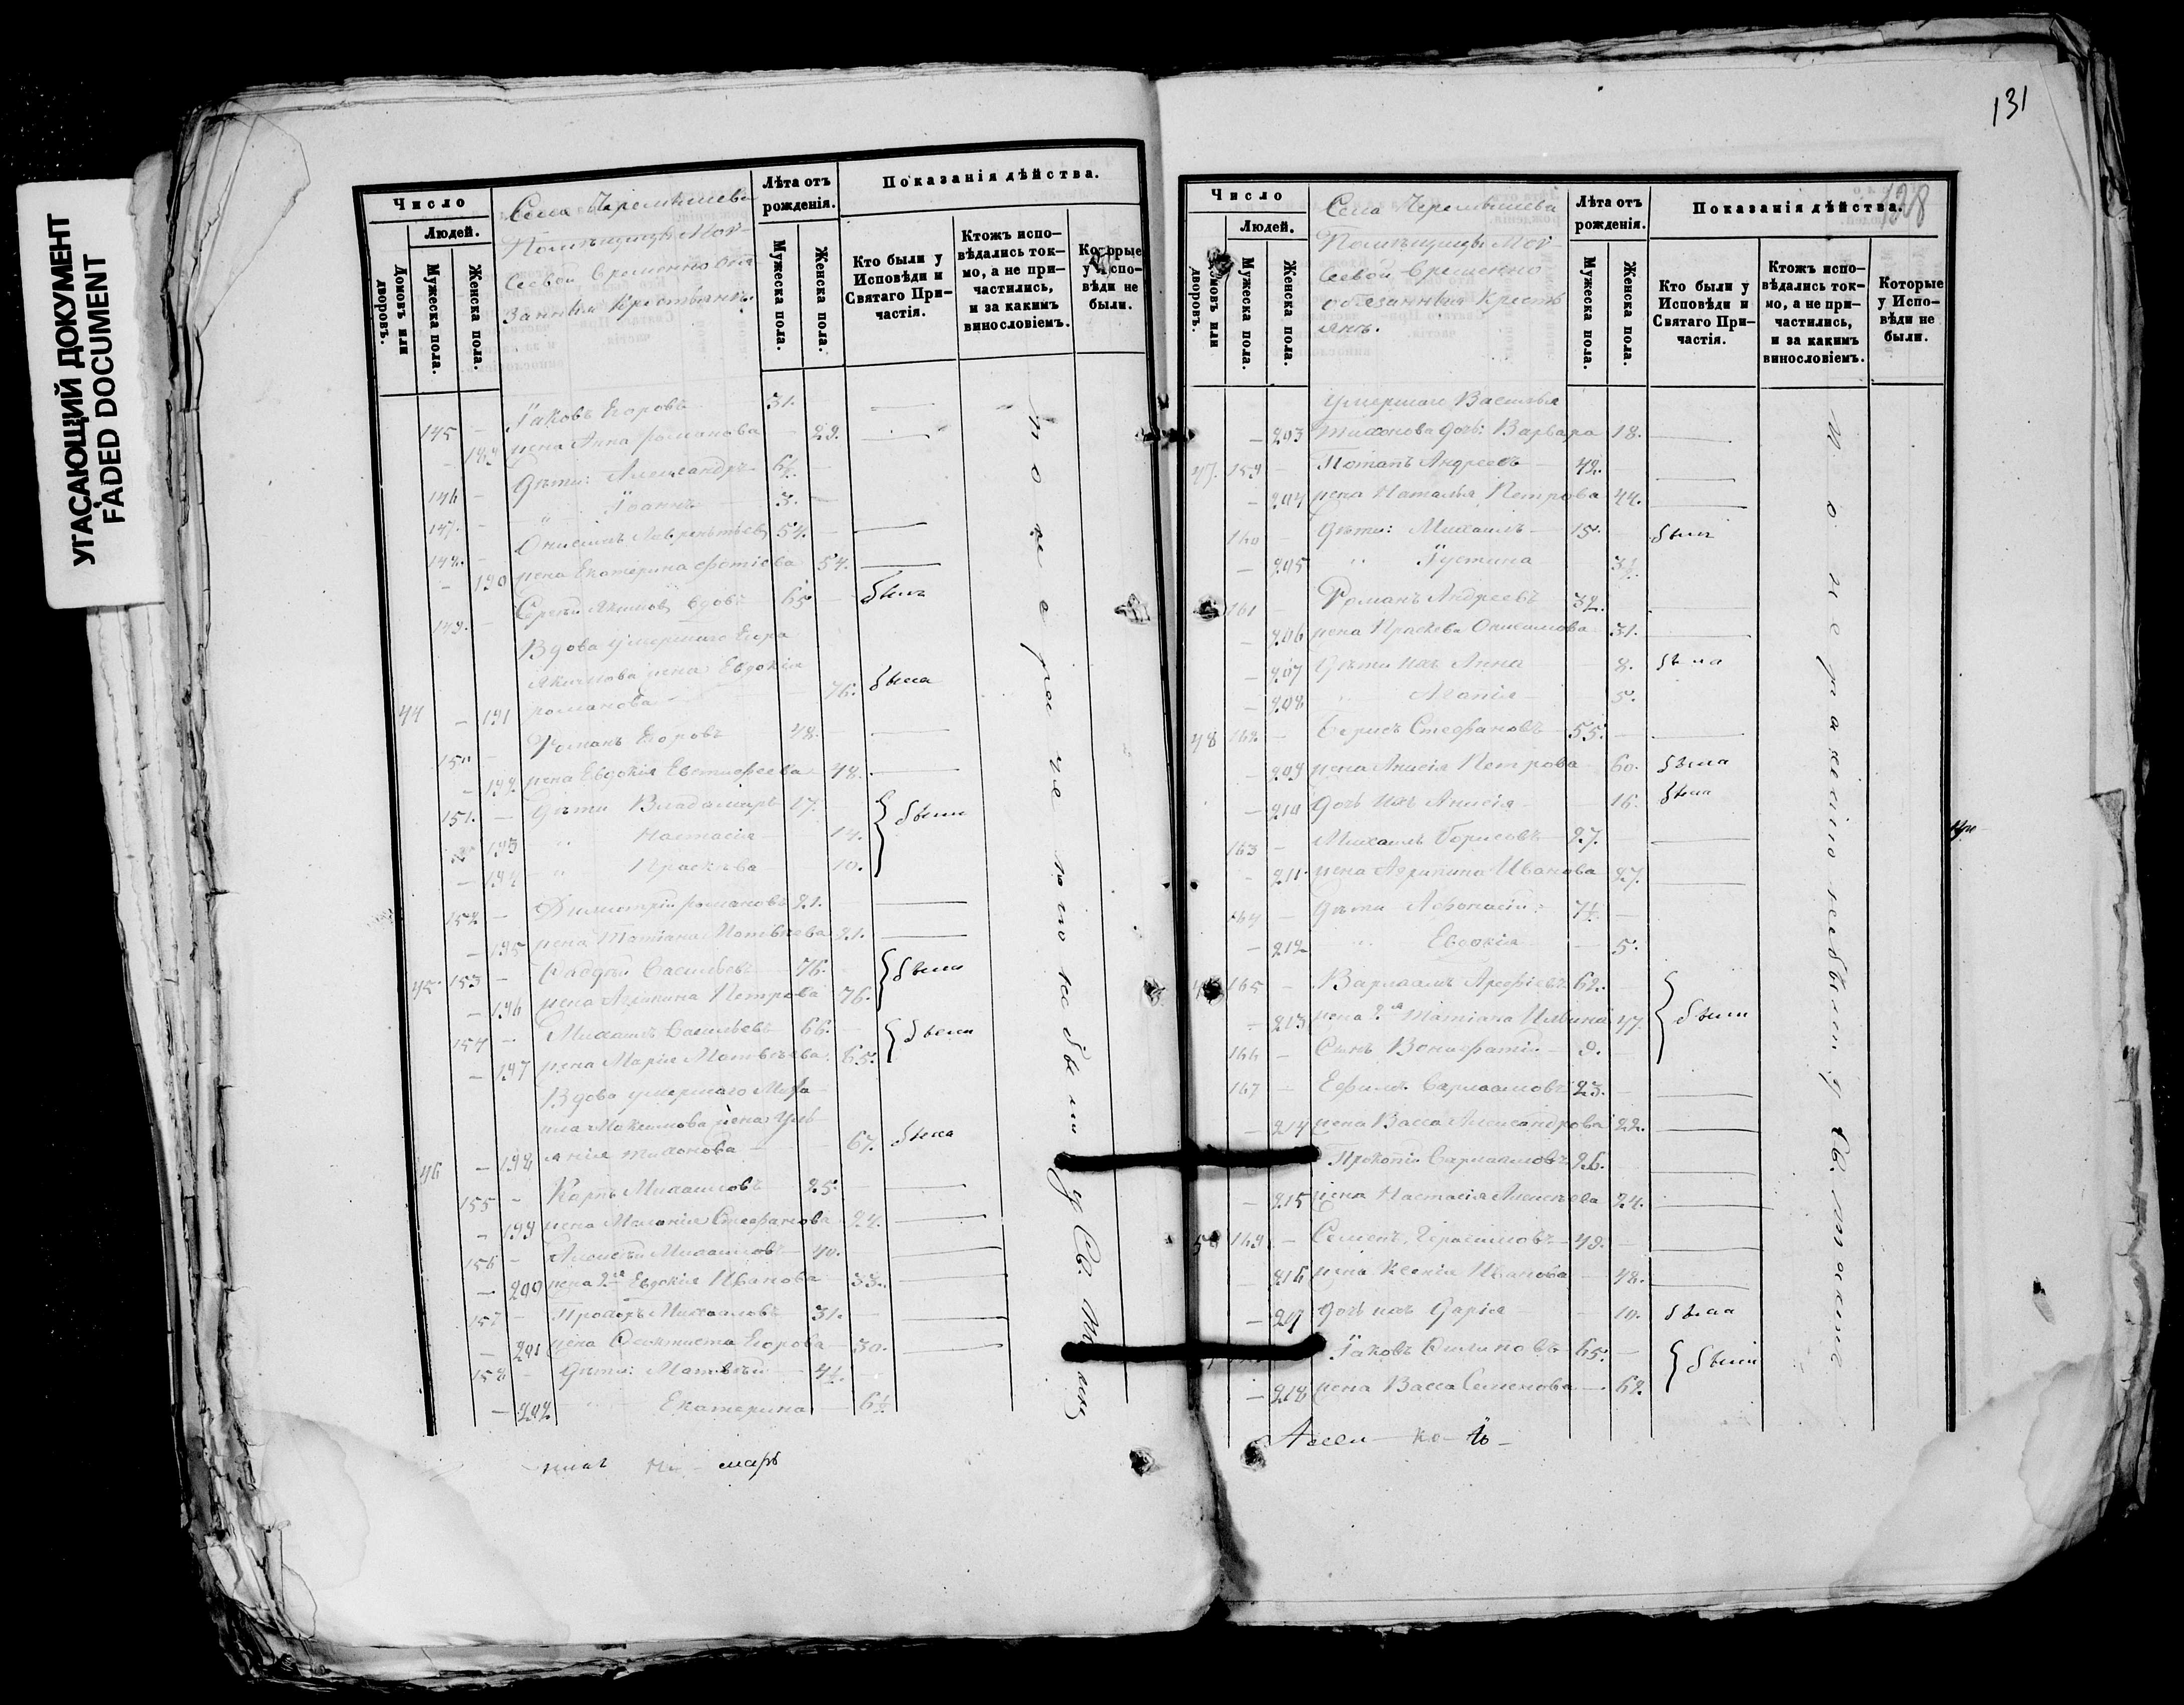 131
УГАСАЮЩИЙ ДОКУМЕНТ
FADED DOCUMENT
Число
Людей.
Домовъ или дворовъ.
Мужеска пола.
Женска пола.
Села Черемышева
Помѣщицы Мой-
сеевой временно обя
занныя крестьянъ.
Лѣта отъ рожденія.
Мужеска пола.
Женска пола.
Показанія дѣйства.
Кто были у Исповѣди и Святаго При-частія.
Ктожъ испо-вѣдались ток-мо, а не при-частились, и за какимъ винословіемъ.
Которые у Испо-вѣди не были.
145 – Іаковъ Егоровъ 31.
– 189 жена Анна Романова – 29.
146 – Дѣти: Александръ 6½
147. – " Іоаннъ 3.
148. – Онисимъ Лаврентьевъ 54.
– 190 жена Екатерина Фотіева 54.
149. – вдовъ 65 – былъ
Вдова умершаго Егора
Акимова жена Евдокія
44 – 191 Романова 76. была
150 – Романъ Егоровъ 48.
– 192 жена Евдокія Евтифеева 48.
151. – Дѣти Владимиръ 17. были
193 " Настасія 14.
– 194 " Прасковья 10.
152 – Димитрій Романовъ 21.
– 195 жена Татіана Матвѣева 21.
45 153 – Фаддѣй Васильевъ 76. были
– 196 жена Агрипина Петрова 76.
154 – Михаилъ Васильевъ 66. были
– 197 жена Марія Матвѣева 65.
Вдова умершаго Миха
ила Максимова жена Уль
46 – 198 янія Тихонова 67. была
155 – Карпъ Михаиловъ 25.
– 199 жена Маланія Стефанова 24.
156 – Алексѣй Михаиловъ 40.
– 200 жена 2я Евдокія Иванова 33.
157 – Прохоръ Михаиловъ 31.
– 201 жена Феоктиста Егорова 30.
158 – Дѣти: Матвѣй 4½.
– 202 " Екатерина 6½
не были у Св. Таинъ
Число
Людей.
Домовъ или дворовъ.
Мужеска пола.
Женска пола.
Села Черемышева
Помѣщицы Мой-
сеевой временно
обязанныя кресть
янъ.
Лѣта отъ рожденія.
Мужеска пола.
Женска пола.
Показанія дѣйства.
128
Кто были у Исповѣди и Святаго При-частія.
Ктожъ испо-вѣдались ток-мо, а не при-частились, и за какимъ винословіемъ.
Которые у Испо-вѣди не были.
умершаго Василья
– 203 Тихонова дочь: Варвара 18.
47. 159 – Потапъ Андреевъ 42.
– 204 жена Наталья Петрова 44.
160 – Дѣти: Михаилъ 15. былъ
– 205 " Іустина 3½
161 – Романъ Андреевъ 32.
– 206 жена Праскева Онисимова 31.
– 207 Дѣти ихъ Анна 8. была
– 208 Агапія 5.
48 162 – Борисъ Стефановъ 55.
– 209 жена Анисія Петрова 60. была
– 210 дочь ихъ Анисія 16. была
163 – Михаилъ Борисовъ 27.
– 211 жена Агрипина Иванова 27.
164 – Дѣти Афонасій: 7½
– 212 " Евдокія 5.
165 – Варлаамъ Арефіевъ 62. были
– 213 жена 2я Татіана Ильина 47.
166 – Сынъ Вонифатій 9.
167 – Ефимъ Варлаамовъ 23.
– 214 жена Васса Александрова 22.
Прокопій Варлаамовъ 26.
– 215 жена Настасія Алексѣева 24.
169 – Семенъ Герасимовъ 49.
– 216 жена Ксенія Иванова 48.
– 217 дочь ихъ Дарія 10. была
Іаковъ Филиповъ 65. были
– 218 жена Васса Семенова 62.
по нераженію не были у Св. Таинъ